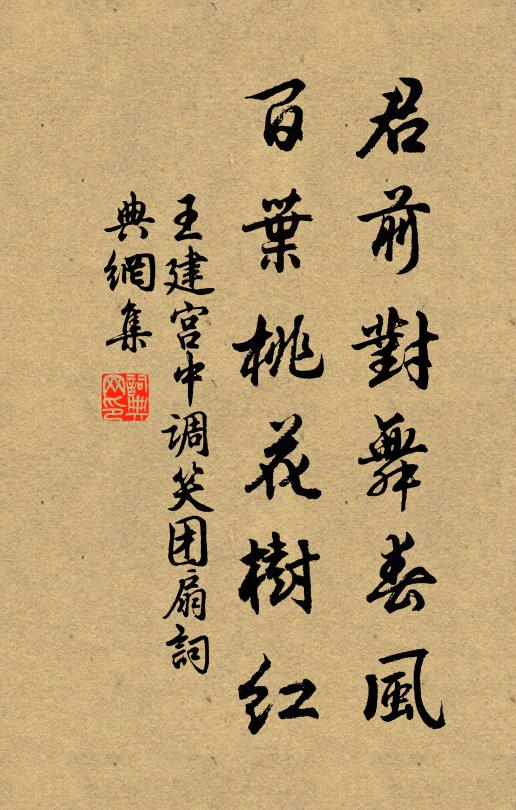 君前對舞春風
百葉桃花樹紅
王建宫中调笑团扇詞
典網集
詞典網印